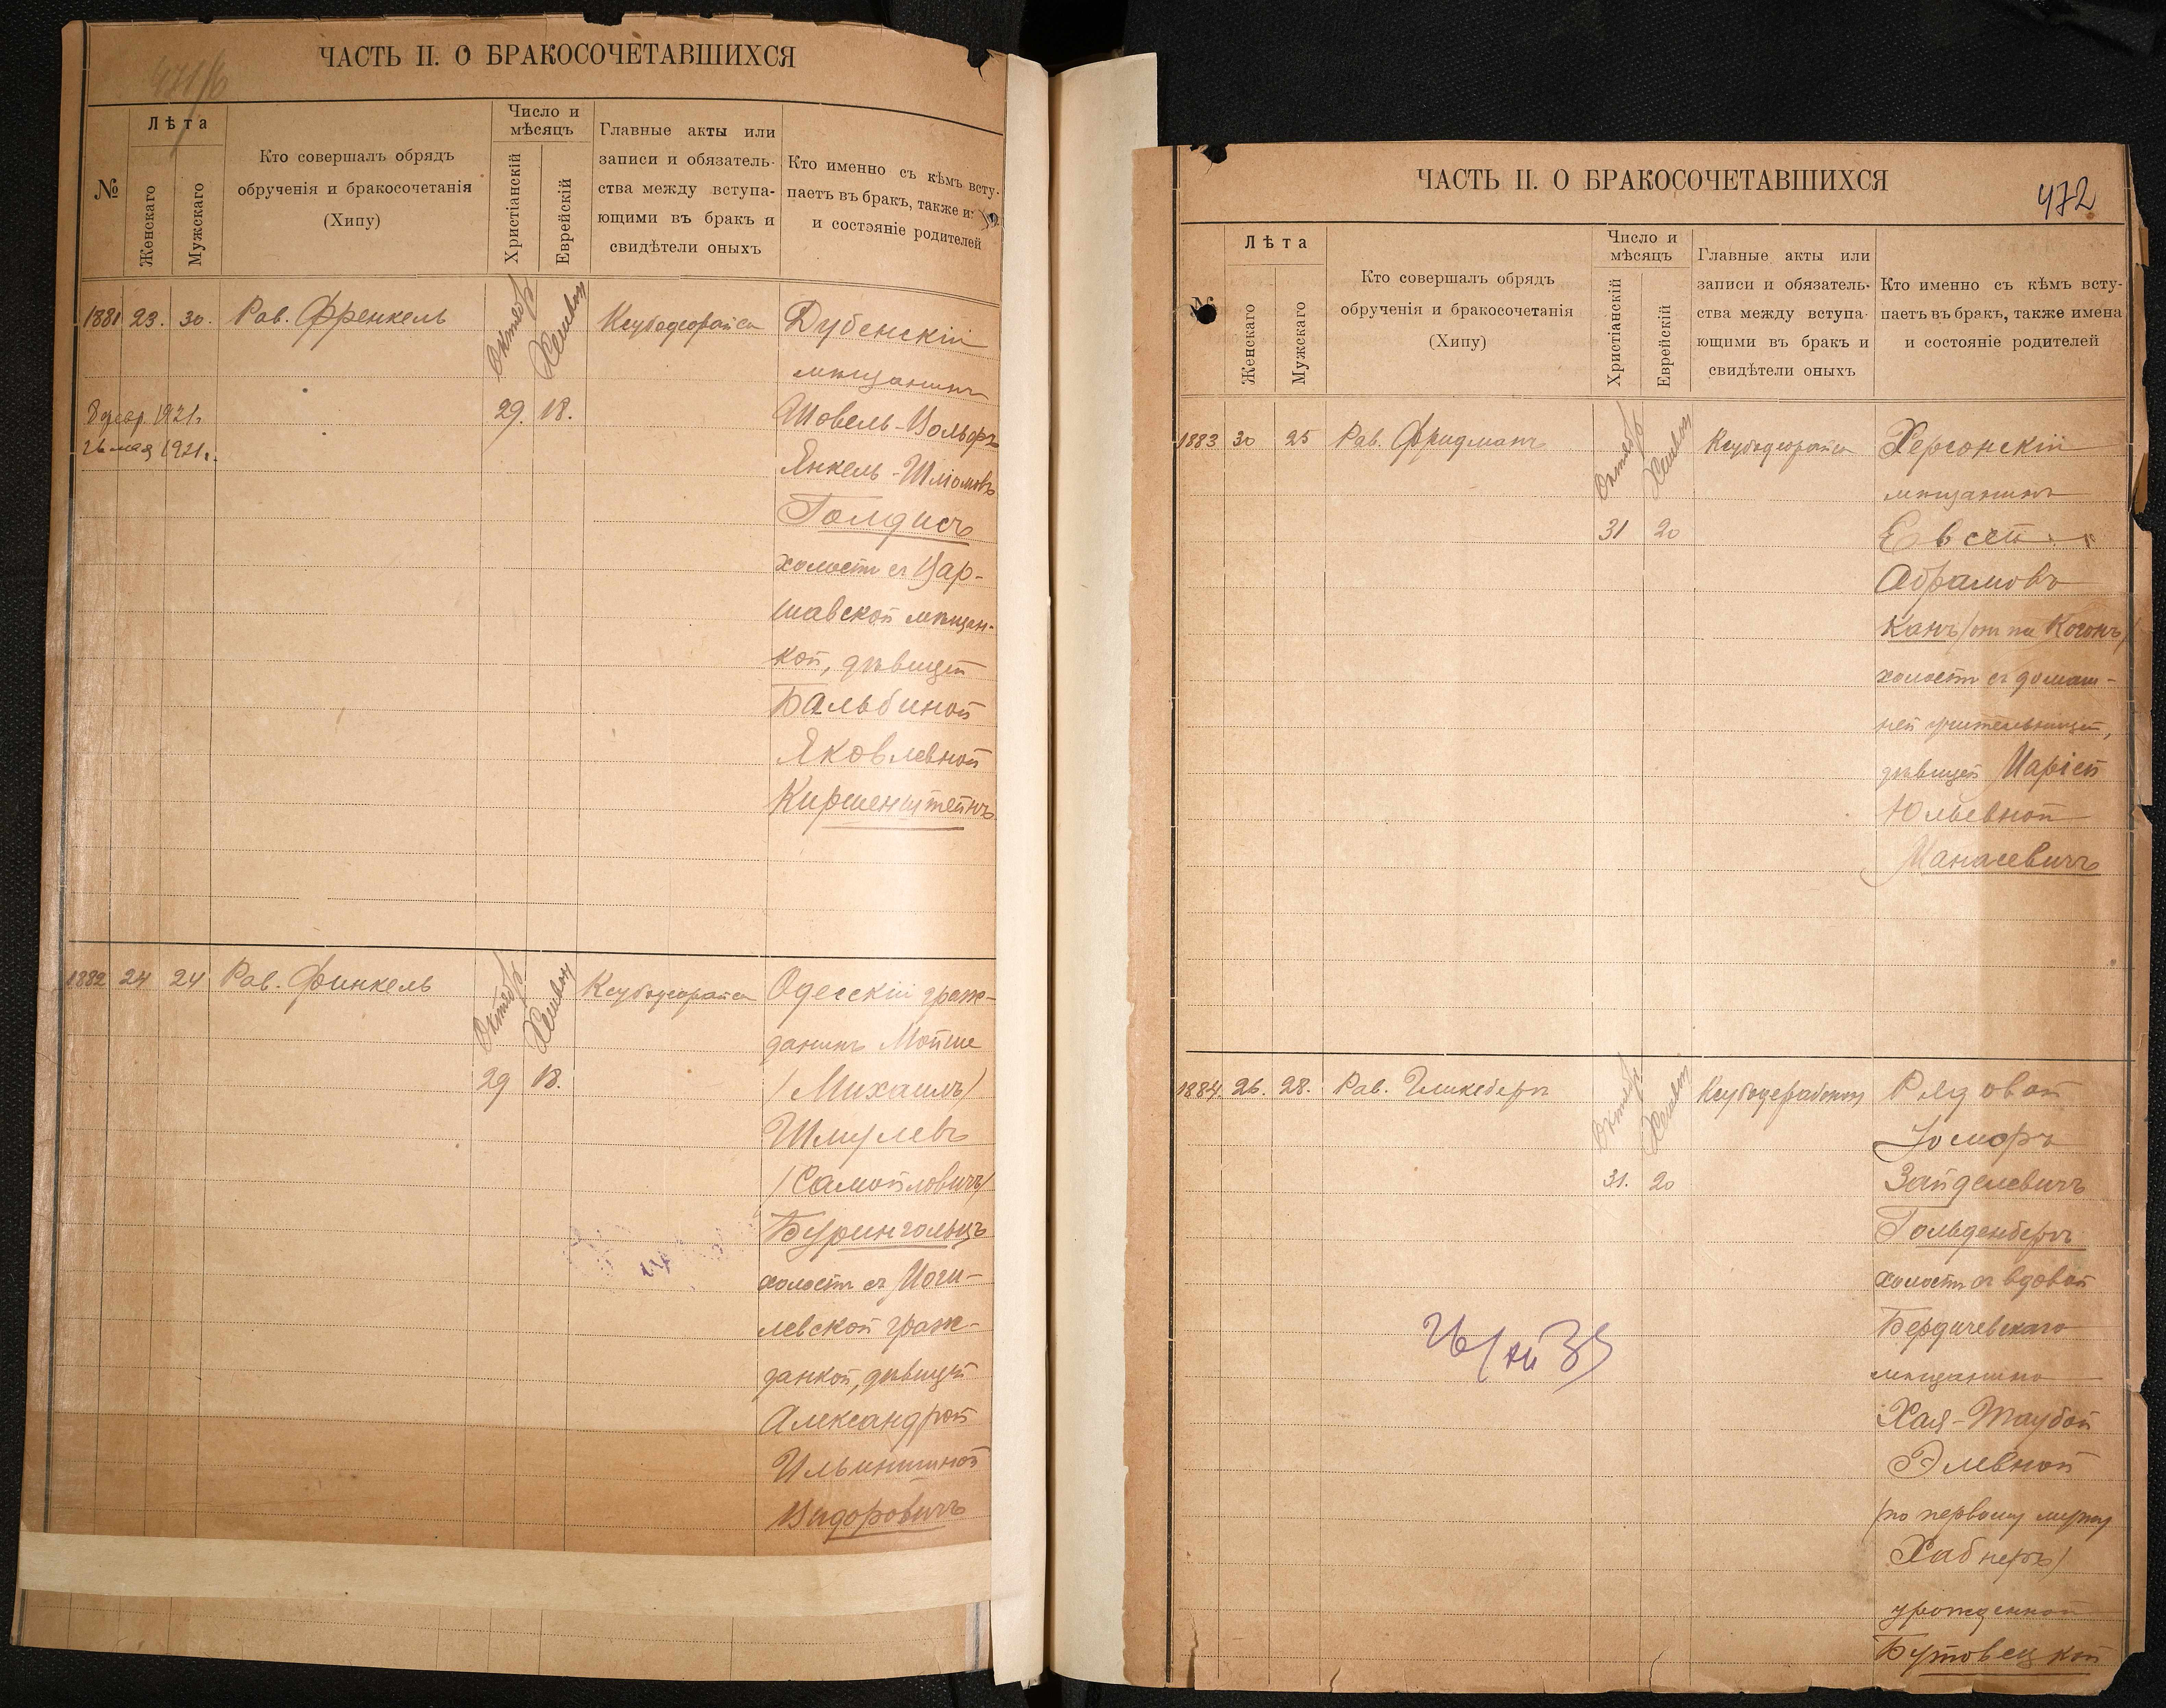 ЧАСТЬ II. О БРАКОСОЧЕТАВШИХСЯ
№
Лѣта
Женскаго
Мужскаго
Кто совершалъ обрядъ
обрученія и бракосочетанія
(Хипу)
Число и
мѣсяцъ
Христіанскій
Еврейскій
Главные акты или
записи и обязатель-
ства между вступа-
ющими въ бракъ и
свидѣтели оныхъ
Кто именно съ кѣмъ всту-
паетъ въ бракъ, также и
и состояніе родителей
1881 23. 30. Рав. Френкель
Октябр Хешвон
29. 18.
Ксубодеорайса
8 февр. 1921г.
26 мая 1921г.
Дубенскій
мѣщанинъ
Шовель-Вольфъ
Янкель-Шліомовъ
Голдисъ
холостъ съ Вар-
шавской мѣщан-
кой, дѣвицей
Бальбиной
Яковлевной
Киршенштейнъ
1882 24 24 Рав. Финкель
Октябр Хешвон
29 18.
Ксубодеорайса
Одесскій граж-
данинъ Мойше
/Михаилъ/
Шмулевъ
/Самойловичъ/
Бурингольцъ
холостъ съ Моги-
левской граж-
данкой, дѣвицей
Александрой
Ильиничной
Видоровичъ
ЧАСТЬ II. О БРАКОСОЧЕТАВШИХСЯ
472
№
Лѣта
Женскаго
Мужскаго
Кто совершалъ обрядъ
обрученія и бракосочетанія
(Хипу)
Число и
мѣсяцъ
Христіанскій
Еврейскій
Главные акты или
записи и обязатель-
ства между вступа-
ющими въ бракъ и
свидѣтели оныхъ
Кто именно съ кѣмъ всту-
паетъ въ бракъ, также имена
и состояніе родителей
1883 30 25 Рав. Фридманъ
Октябр Хешвон
31 20
Ксубодеорайса
Херсонскій
мѣщанинъ
Евсей
Абрамовъ
Канъ /онъ же Когонъ/
холостъ съ домаш-
ней учительницей,
дѣвицей Маріей
Юльевной
Манасевичъ
1884. 26. 28. Рав. Гликсбергъ
Октябр Хешвон
31. 20
Рядовой
Іоморъ
Зайделевичъ
Гольденбергъ
холостъ съ вдовой
Бердичевскаго
мѣщанина
Хая-Таубой
Элевной
/по первому мужу
Хабнеръ/
урожденной
Бутовецкой